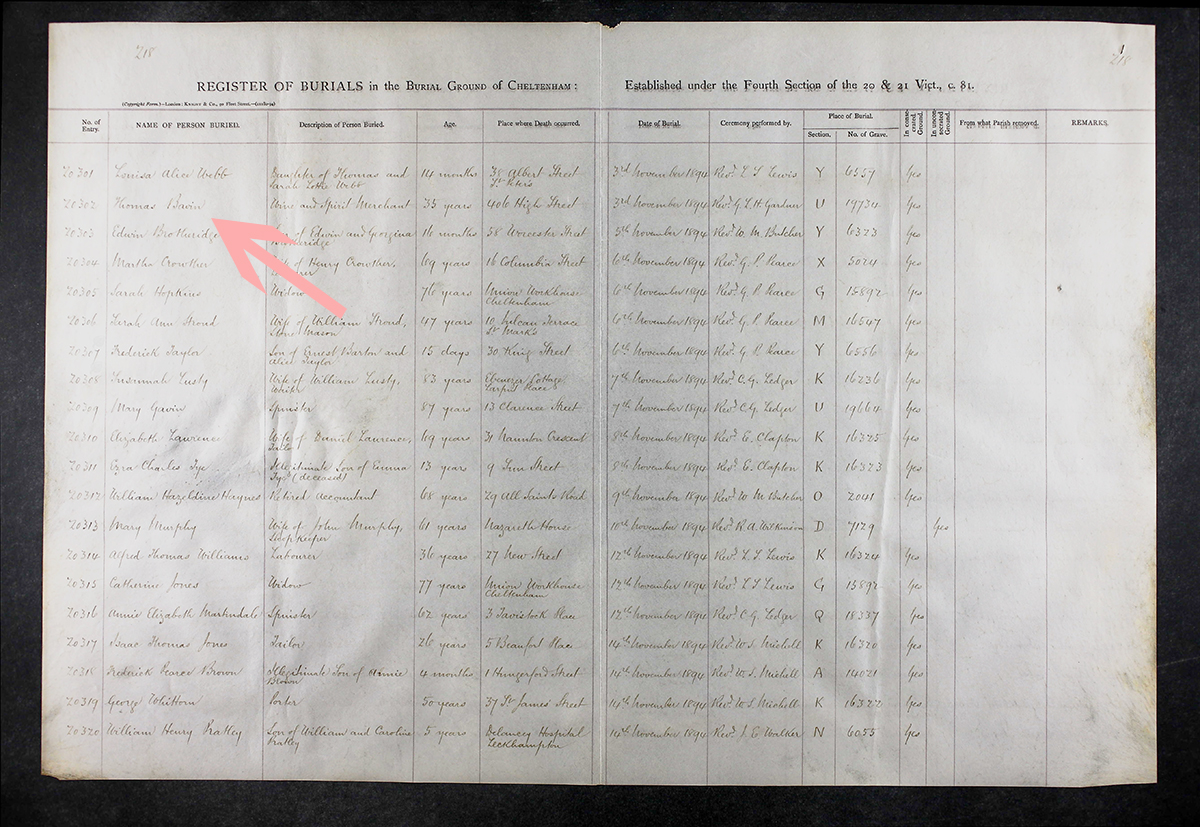 218
218
REGISTER OF BURIALS in the BURIAL GROUND OF CHELTENHAM: Established under the Fourth Section of the 20 & 21 Vict., c. 81.
(Copyright Form.)—London: KNIGHT & Co., 90 Fleet Street.
No. of Entry. NAME OF PERSON BURIED. Description of Person Buried. Age. Place where Death occurred. Date of Burial. Ceremony performed by. Place of Burial. Section. No. of Grave. In consecrated Ground. In unconsecrated Ground. From what Parish removed. REMARKS.
20301 Louisa Alice Webb Daughter of Thomas and 14 months 38 Albert Street 3rd November 1894 Revd. L S Lewis Y 6557 Yes
Sarah Webb St Peters
20302 Thomas Bavin Wine and Spirit Merchant 35 years 406 High Street 3rd November 1894 Revd. G. L. H. Gardner U 19734 Yes
20303 Edwin Brotheridge Son of Edwin and Georgina 16 months 58 Worcester Street 5th November 1894 Revd. W. M. Butcher Y 6323 Yes
20304 Martha Crowther of Henry Crowther, 69 years 16 Columbia Street 6th November 1894 Revd. G. P. Pearce X 5024 Yes
20305 Sarah Hopkins Widow 76 years Union Workhouse 6th November 1894 Revd. G. P. Pearce G 15892 Yes
Cheltenham
20306 Sarah Ann Stroud Wife of William Stroud, 47 years 10 Vulcan Terrace 6th November 1894 Revd. G. P. Pearce M 16547 Yes
Stone Mason St Marks
20307 Frederick Taylor Son of Ernest Barton and 15 days 30 King Street 6th November 1894 Revd. G. P. Pearce Y 6556 Yes
Alice Taylor
20308 Susannah Lusty Wife of William Lusty, 83 years Ebenezer Cottage 7th November 1894 Revd. C. G. Ledger K 16236 Yes
20309 Mary Gavin Spinster 87 years 13 Clarence Street 7th November 1894 Revd. C. G. Ledger U 19664 Yes
20310 Elizabeth Lawrence Wife of Daniel Lawrence, 69 years 31 Naunton Crescent 8th November 1894 Revd. E. Clapton K 16325 Yes
Tailor
20311 Ezra Charles Tye Illegitimate Son of Emma 13 years 9 Street 8th November 1894 Revd. E. Clapton K 16323 Yes
Tye (deceased)
20312 William Hazeldine Haynes Retired Accountant 68 years 29 All Saints Road 9th November 1894 Revd. W M Butcher O 2041 Yes
20313 Mary Murphy Wife of John Murphy, 61 years Nazareth House 10th November 1894 Revd. R. A. Wilkinson D 7129 Yes
Shop Keeper
20314 Alfred Thomas Williams Labourer 36 years 27 New Street 12th November 1894 Revd. L. S. Lewis K 16324 Yes
20315 Catherine Jones Widow 77 years Union Workhouse 12th November 1894 Revd. L S Lewis G 15892 Yes
Cheltenham
20316 Annie Elizabeth Martindale Spinster 62 years 3 Tavistock Place 12th November 1894 Revd. C. G. Ledger Q 18337 Yes
20317 Isaac Thomas Jones Tailor 26 years 5 Beaufort Place 14th November 1894 Revd. W. S. Michell K 16320 Yes
20318 Frederick Pearce Brown Illegitimate Son of Annie 4 months 1 Hungerford Street 14th November 1894 Revd. W. S. Michell A 14021 Yes
Brown
20319 George Whithorn Porter 50 years 37 St James' Street 14th November 1894 Revd. W S Michell K 16322 Yes
20320 William Henry Pratley Son of William and Caroline 5 years Delancey Hospital 14th November 1894 Revd. J. E. Walker N 6055 Yes
Pratley Leckhampton